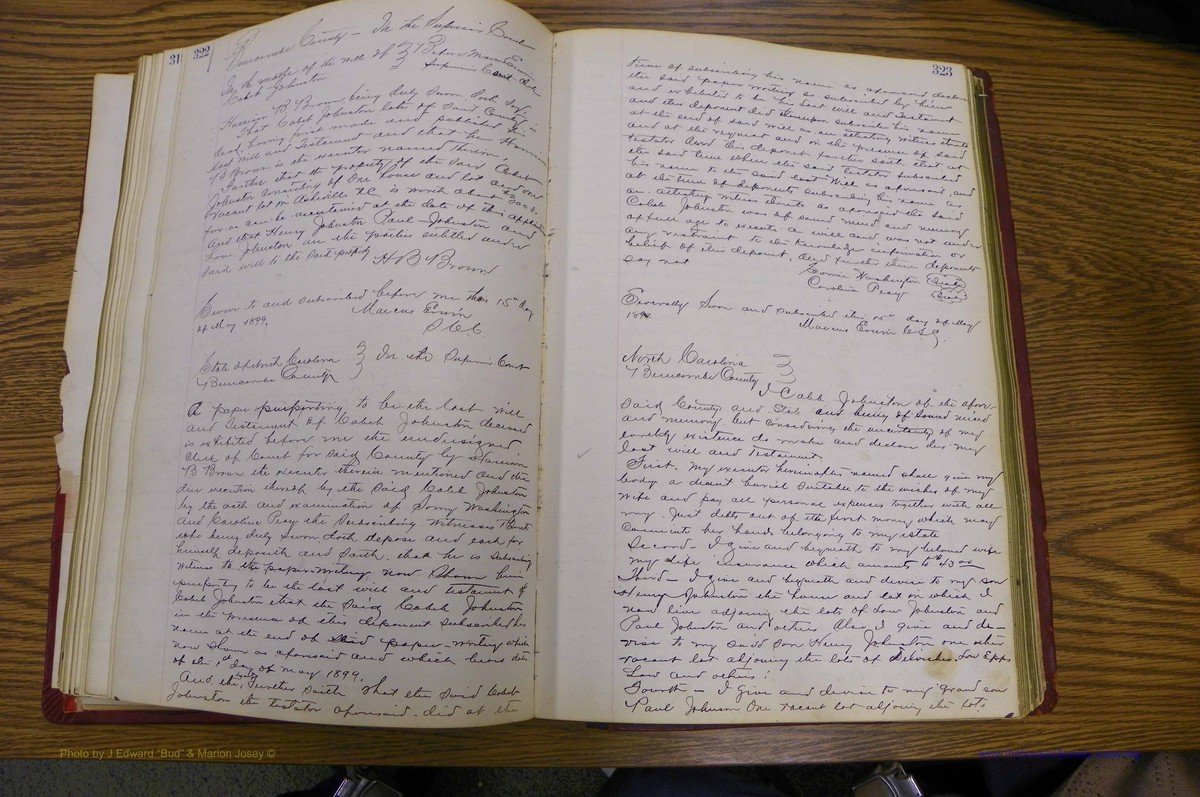 31
322
Buncombe County - In the Superior Court
In the matter of the Will of } Before Marcus Erwin Clk
Caleb Johnston Superior Court
Harrison B Brown being duly sworn doth say
That Caleb Johnston late of said County is
dead, having first made and published his
last Will and Testament and that he Harrison
B Brown is the executor named therein.
Further that the property of the said Caleb
Johnston consisting of One house and lot and one
vacant lot in Asheville N.C. is worth about $300.00
far as can be ascertained at the date of this application
And that Henry Johnston Paul Johnston and
Lou Johnston are the parties entitled under
said will to the said property
H B Brown
Sworn to and subscribed before me this 15th day
of May 1899.
Marcus Erwin
S C C
State of North Carolina } In the Superior Court
Buncombe County
A paper purporting to be the last will
and testament of Caleb Johnston deceased
is exhibited before me the undersigned
Clerk of Court for said County by Harrison
B Brown the executor therein mentioned and the
due execution thereof by the said Caleb Johnston
by the oath and examination of Sonny Washington
and Caroline Peay the subscribing witnesses thereto
who being duly sworn doth depose and each for
himself deposeth and saith. that he is subscribing
witness to the paper-writing now shown him
purporting to be the last will and testament of
Caleb Johnston that the said Caleb Johnston
in the presence of this deponent subscribed his
name at the end of said paper-writing which
now shown as aforesaid and which bears date
of the 1st day of May 1899.
And the further saith that the said Caleb
Johnston the testator aforesaid. did at the
323
time of subscribing his name as aforesaid declare
the said paper writing so subscribed by him
and exhibited to be his last will and testament
and this deponent did thereupon subscribe his name
at the end of said will as an attesting witness thereto
and at the request and in the presence of said
testator And this deponent further saith that at
the said time when the said testator subscribed
his name to the said last will as aforesaid and
at the time of deponents subscribing his name as
an attesting witness thereto as aforesaid the said
Caleb Johnston was of sound mind and memory
of full age to execute a will and was not under
any restraint to the knowledge information or
belief of this deponent. And further these deponents
say not
Washington (Seal)
Caroline Peay (Seal)
Severally sworn and subscribed this 15th day of May
1899.
Marcus Erwin C S C.
North Carolina }
Buncombe County
I Caleb Johnston of the afore-
said County and State and being of sound mind
and memory. but considering the uncertainty of my
earthly existence do make and declare this my
last will and testament.
First. My executor hereinafter named shall give my
body a decent burial suitable to the wishes of my
wife and pay all personal expenses together with all
my just debts out of the first money which may
come into his hands belonging to my estate
Second - I give and bequeath to my beloved wife
my life insurance which amounts to $43.00
Third - I give and bequeath and devise to my son
Henry Johnston the house and lot on which I
now live adjoining the lots of Lou Johnston and
Paul Johnston and others Also I give and de-
vise to my said son Henry Johnston one other
vacant lot adjoining the lots of Lou Epps
Law and others:
Fourth - I give and devise to my grand son
Paul Johnson One vacant lot adjoining the lots
Photo by J Edward "Bud" & Marion Josey ©